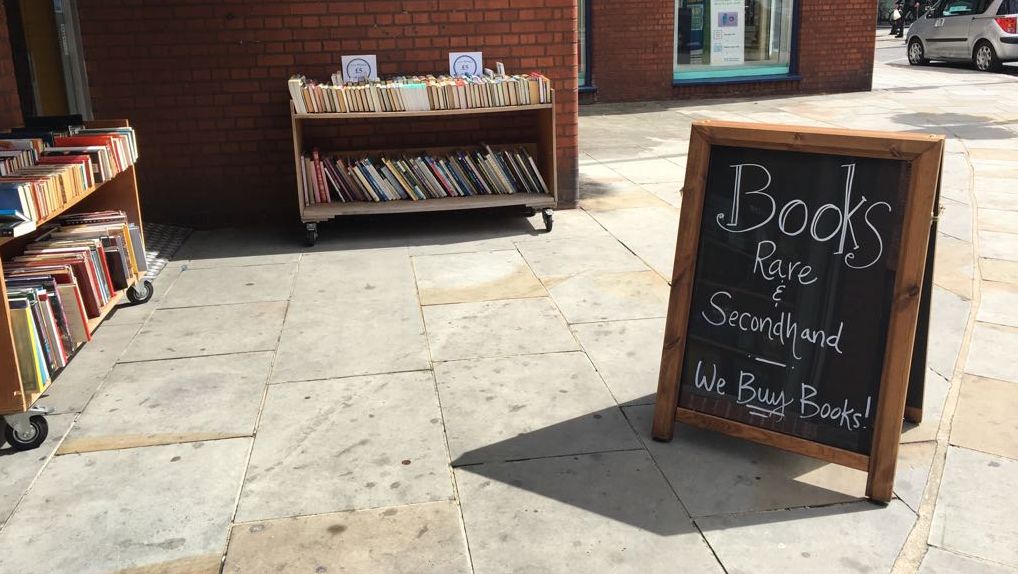 £5
£5
Books
Rare
&
Secondhand
We Buy Books!